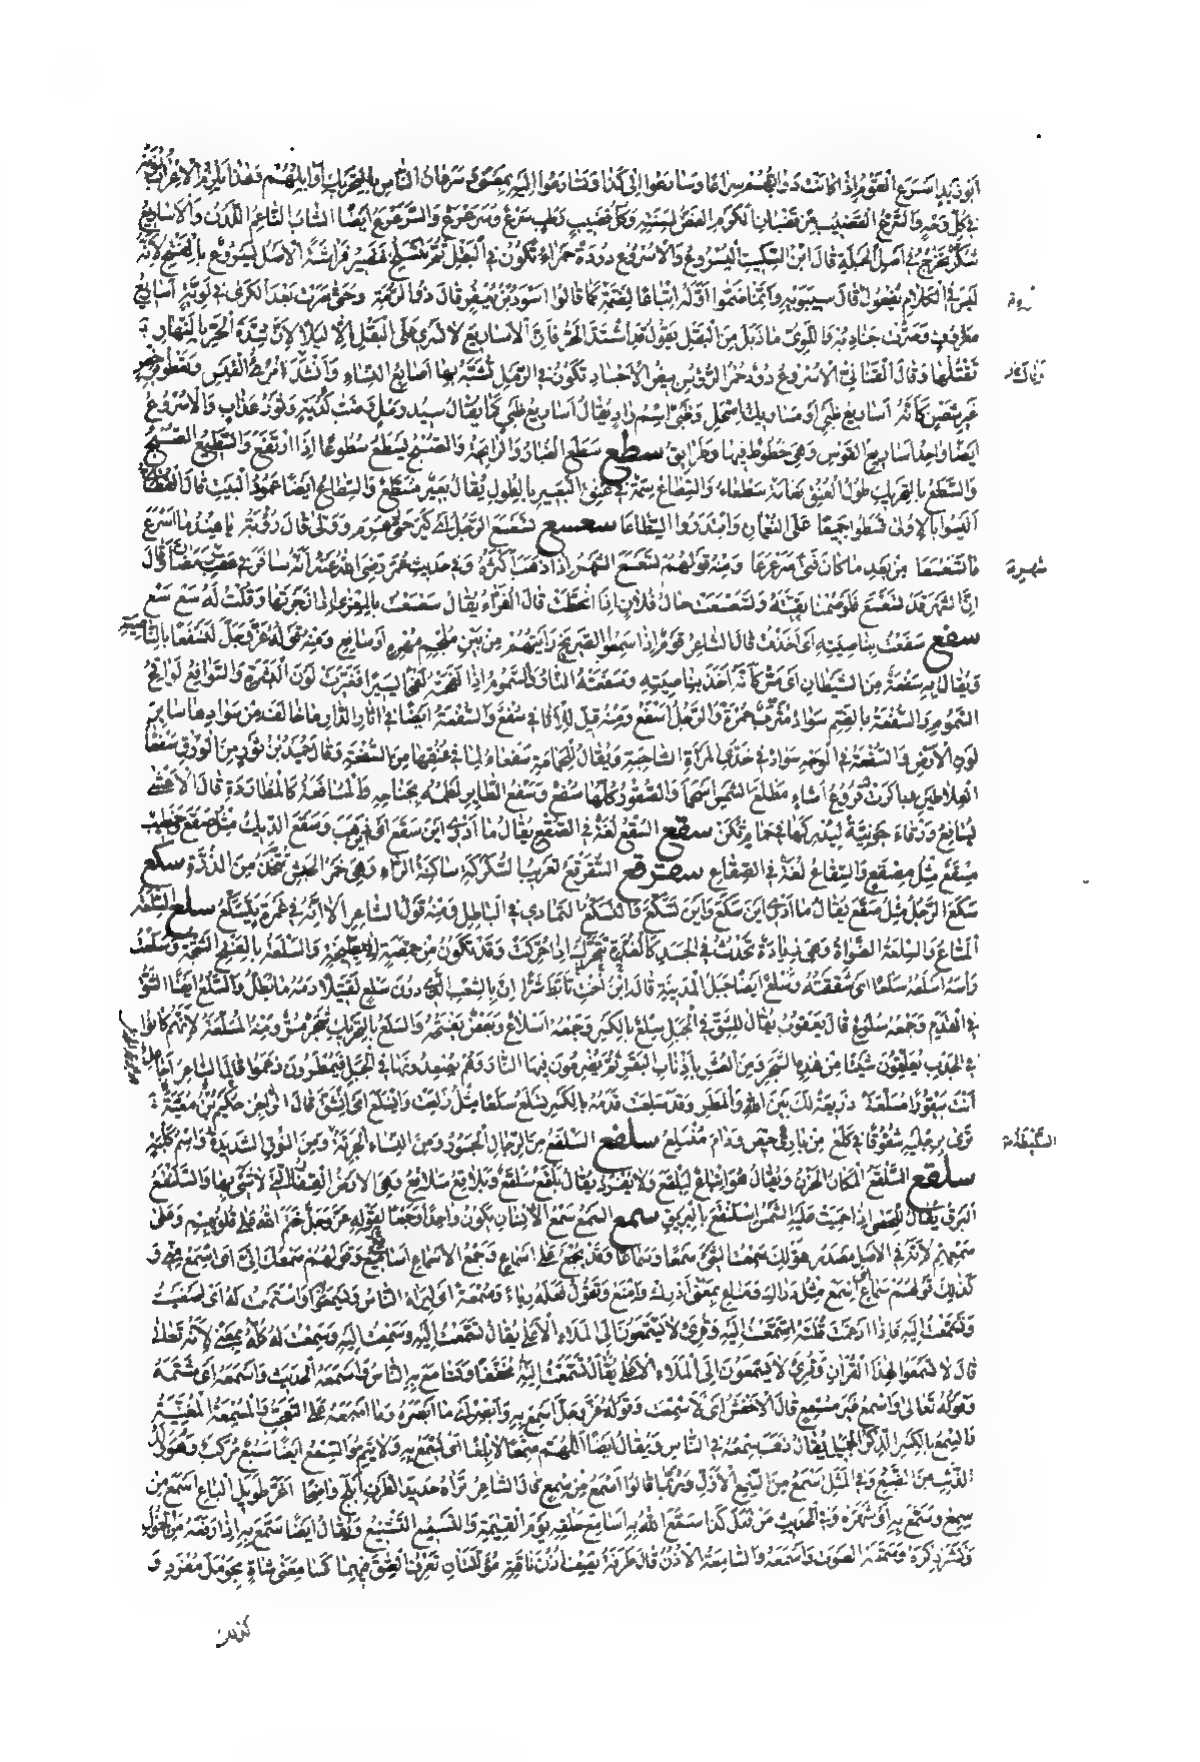 أبو زيد أسرع القوم إذا كانت دوابهم سراعا وسارعوا إلى كذا وتسارعوا إليه بمعنى وسرعان الناس بالتحريك أوائلهم فهذا يلزم الإعراب
في كل وجه والسرع القضيب من قضبان الكرم الغض لسنته وكل قضيب رطب سرع وسرعرع والسرعرع أيضا الشاب الناعم اللدن والأساريع
شكر تخرج في أصل الحبلة قال ابن السكيت اليسروع والأسروع دودة حمراء تكون في البقل ثم تنسلخ فتصير فراشة الأصل يسروع بالفتح لأنه
ليس في الكلام يفعول قال سيبويه وإنما ضموا أوله إتباعا لضمة كما قالوا أسود بن يعفر قال ذو الرمة وحتى سرت بعد الكرى في لويه أساريع
معروف وصرت جنادبه واللوي ما ذبل من البقل يقول قد اشتد الحر فإن الأساريع لا تسري على البقل إلا ليلا لأن شدة الحر بالنهار
تقتلها وقال القناني الأسروع دود حمر الرؤس بيض الأجساد تكون في الرمل تشبه بها أصابع النساء وأنشد لامرئ القيس وتعطو برخص
غير شثن كأنه أساريع ظبي أو مساويك إسحل وظبي اسم واد يقال أساريع ظبي كما يقال سيد رمل وضب كدية وثور عداب والأسروع
أيضا واحد أساريع القوس وهي خطوط فيها وطرائق سطع سطع الغبار والرائحة والصبح يسطع سطوعا إذا ارتفع والسطيع الصبح
والسطع بالتحريك طول العنق نعامة سطعاء والسطاع سمة في عنق البعير بالطول يقال بعير مسطع والسطاع أيضا عمود البيت قال القطامي
أليسوا بالأولى قسطوا جميعا على النعمان وابتدروا السطاعا سعسع تسعسع الرجل أي كبر حتى هرم وولى قال رؤبة يا هند ما أسرع
ما تسعسعا من بعد ما كان فتى سرعرعا ومنه قولهم تسعسع الشهر إذا ذهب أكثره وفي حديث عمر رضي الله عنه أنه سافر في عقب رمضان وقال
إن الشهر قد تسعسع فلو صمنا بقيته وتسعسعت حال فلان إذا انحطت قال الفراء يقال سعسعت بالمعزى إذا زجرتها وقلت له سع سع
سفع سفعت بناصيته أي أخذت قال الشاعر قوم إذا سمعوا الصريخ رأيتهم من بين ملجم مهره أو سافع ومنه قوله عز وجل لنسفعا بالناصية
ويقال به سفعة من الشيطان أي مس كأنه أخذ بناصيته وسفعته النار والسموم إذا لفحته لفحا يسيرا فغيرت لون البشرة والسوافع لوافح
السموم والسفعة بالضم سواد مشرب حمرة والرجل أسفع ومنه قيل للأثافي سفع والسفعة أيضا في آثار الدار ما خالف من سوادها سائر
لون الأرض والسفعة في الوجه سواد في خدي المرأة الشاحبة ويقال للحمامة سفعاء لما في عنقها من السفعة وقال حميد بن ثور من الورق سفعاء
العلاطين باكرت فروع أشاء مطلع الشمس أسحما والصقور كلها سفع وسفع الطائر لطمه بجناحه والمسافعة كالمطاردة قال الأعشى
يسافع ورقاء جونية ليدركها في حمام ثكن سقع السقع لغة في الصقع يقال ما أدري أين سقع أي ذهب وسقع الديك مثل صقع وخطيب
مسقع مثل مصقع والسقاع لغة في الصقاع سقرقع السقرقع تعريب السكركة ساكنة الراء وهي خمر الحبش تتخذ من الذرة سكع
سكع الرجل مثل سقع يقال ما أدري أين سكع وأين تسكع والتسكع التمادي في الباطل ومنه قول الشاعر ألا إنه في غمرة يتسكع سلع السلعة
المتاع والسلعة الضواة وهي زيادة تحدث في الجسد كالغدة تتحرك إذا حركت وقد تكون من حمصة إلى بطيخة والسلعة بالفتح الشجة وسلعت
رأسه أسلعه سلعا أي شققته وسلع أيضا جبل بالمدينة قال ابن أخت تأبط شرا إن بالشعب الذي دون سلع لقتيلا دمه ما يطل والسلع أيضا الشق
في القدم وجمعه سلوع قال يعقوب يقال للشق في الجبل سلع بالكسر وجمعه أسلاع وبعض يفتحه والسلع بالتحريك شجر مر ومنه المسلعة لأنهم كانوا
في الجدب يعلقون شيئا من هذه الشجر ومن العشر بأذناب البقر ثم يضرمون فيها النار وهم يصعدونها في الجبل فيمطرون زعموا قال الشاعر أجاعل
أنت بيقورا مسلعة ذريعة لك بين الله والمطر وقد سلعت قدمه بالكسر تسلع سلعا مثل زلعت وانسلع أي انشق قال الراجز حكيم بن معية
ترى برجليه شقوقا في كلع من بارئ حيص ودام منسلع سلفع السلفع من الرجال الجسور ومن النساء الجريئة ومن النوق الشديدة واسم كلبة
سلقع السلقع المكان الحزن ويقال هو إتباع لبلقع ولا يفرد يقال بلقع سلقع وبلاقع سلاقع وهي الأرض القفار التي لا شيء بها واسلنقع
البرق يقال للحصى إذا حميت عليه الشمس اسلنقع بالبريق سمع السمع سمع الإنسان يكون واحدا وجمعا لقوله عز وجل ختم الله على قلوبهم وعلى
سمعهم لأنه في الأصل مصدر قولك سمعت الشيء سمعا وسماعا وقد يجمع على أسماع وجمع الأسماع أسامع وقولهم سمعك إلي أي اسمع مني و
كذلك قولهم سماع أي اسمع مثل دراك ومناع بمعنى أدرك وامنع وتقول فعله رياء وسمعة أي ليراه الناس وليسمعوا واستمعت له أي أصغيت
وتسمعت إليه فإذا أدغمت قلت اسمعت إليه وقرئ لا يسمعون إلى الملإ الأعلى يقال تسمعت إليه وسمعت إليه وسمعت له كله بمعنى لأنه تعالى
قال لا تسمعوا لهذا القرآن وقرئ لا يسمعون إلى الملإ الأعلى مخففا وتسامع به الناس وأسمعه الحديث وأسمعه أي شتمه
وقوله تعالى واسمع غير مسمع قال الأخفش أي لا سمعت وقوله عز وجل أسمع به وأبصر أي ما أبصره وما أسمعه على التعجب والمسمعة المغنية
والسمع بالكسر الذكر الجميل يقال ذهب سمعه في الناس ويقال أيضا اللهم سمعا لا بلغا أي نسمع به ولا يتم والسمع أيضا سبع مركب وهو ولد
الذئب من الضبع وفي المثل أسمع من السمع الأزل وربما قالوا أسمع من سمع قال الشاعر تراه حديد الطرف أبلج واضحا أغر طويل الباع أسمع من
سمع وسمع به أي شهره وفي الحديث من فعل كذا سمع الله به أسامع خلقه يوم القيمة والتسميع التشنيع ويقال أيضا سمع به إذا رفعه من الخمول
ونشر ذكره وسمعه الصوت وأسمعه والسامعة الأذن قال طرفة يصف أذن ناقته مؤللتان تعرف العتق فيهما كسامعتي شاة بحومل مفرد و